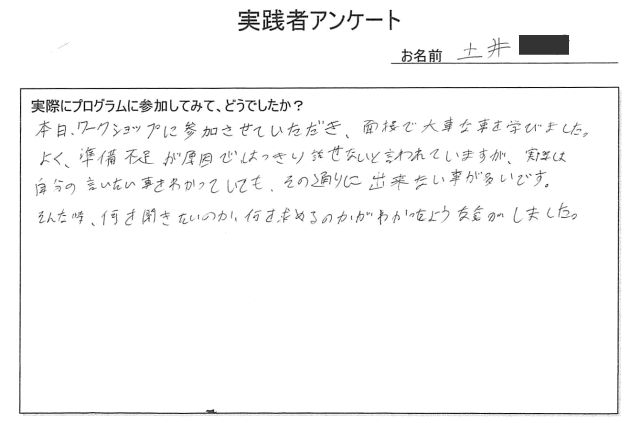 実践者アンケート
お名前 土井
実際にプログラムに参加してみて、どうでしたか？
本日、ワークショップに参加させていただき、面接で大事な事を学びました。
よく、準備不足が原因ではっきり話せないと言われていますが、実際は
自分の言いたい事をわかってしても、その通りに出来ない事が多いです。
そんな時、何を聞きたいのか、何を求めるのかがわかったような気がしました。